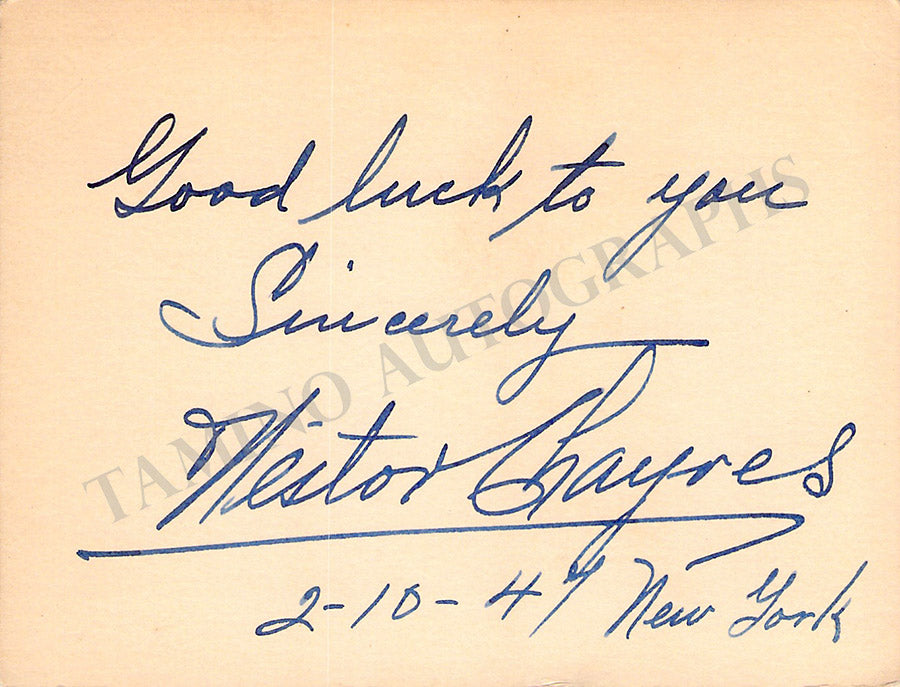 Good luck to you
Sincerely
Néstor Chayres
2-10-47 New York
TAMINO AUTOGRAPHS